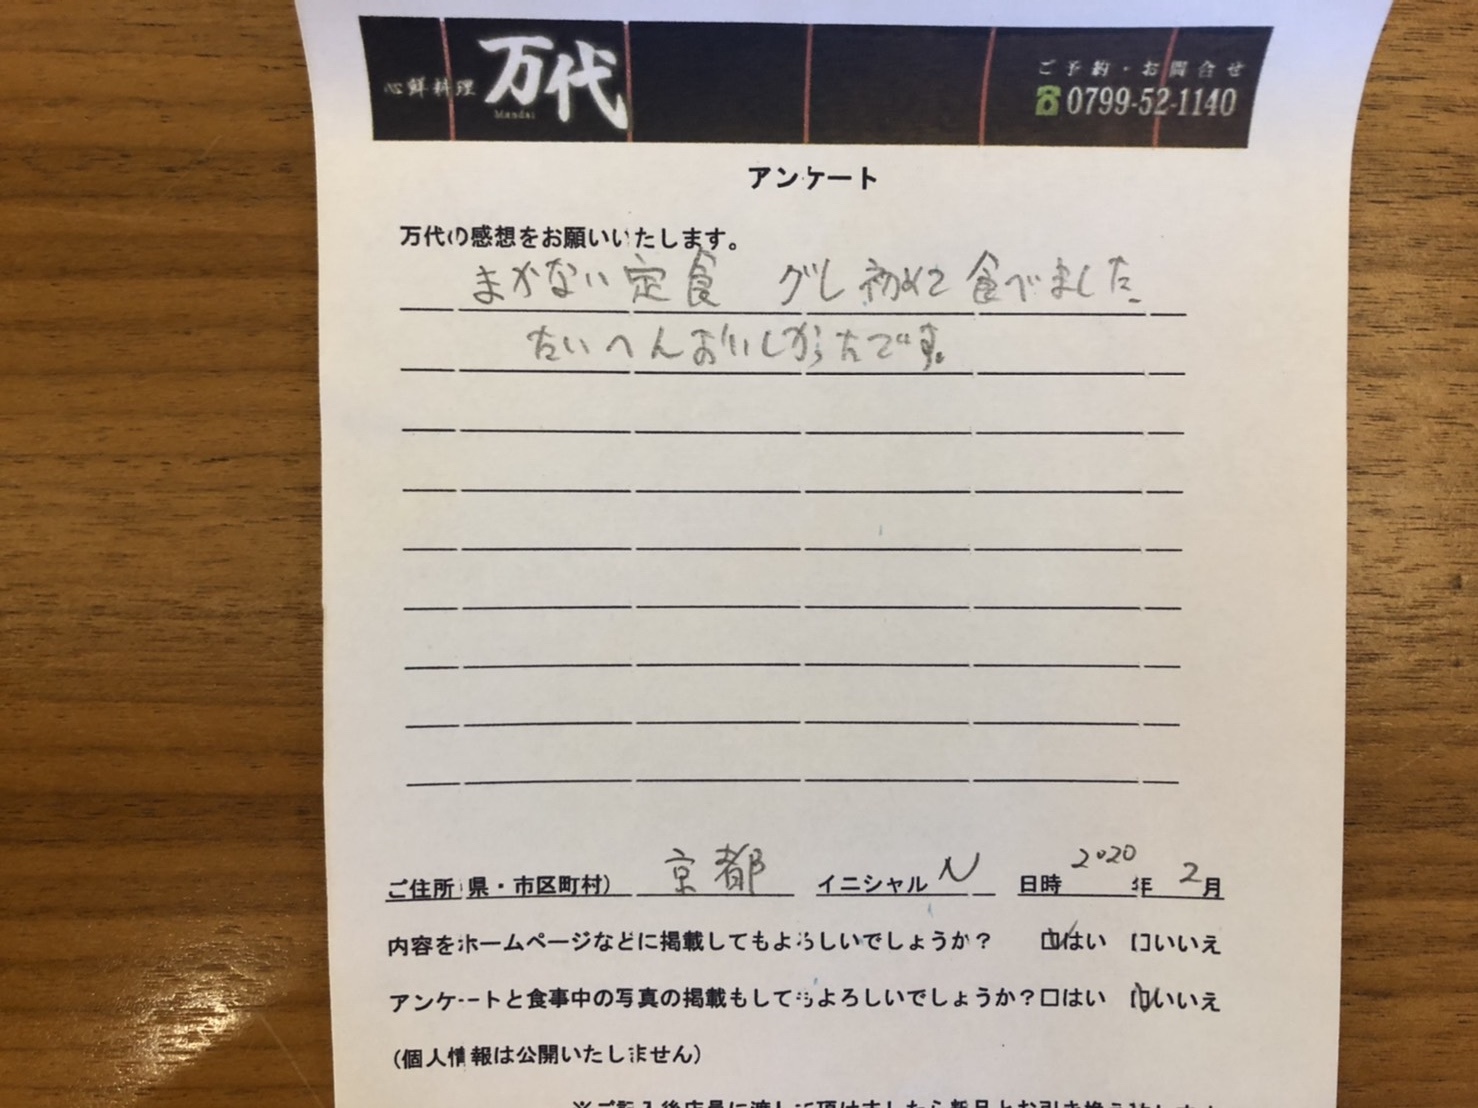 心鮮料理 万代
Mandai
ご予約・お問合せ
0799-52-1140
アンケート
万代の感想をお願いいたします。
まかない定食 グレ初めて食べました
たいへんおいしかったです。
ご住所 県・市区町村) 京都 イニシャル N 日時 2020年 2月
内容をホームページなどに掲載してもよろしいでしょうか? □はい □いいえ
アンケートと食事中の写真の掲載もしてもよろしいでしょうか?□はい □いいえ
(個人情報は公開いたしません)